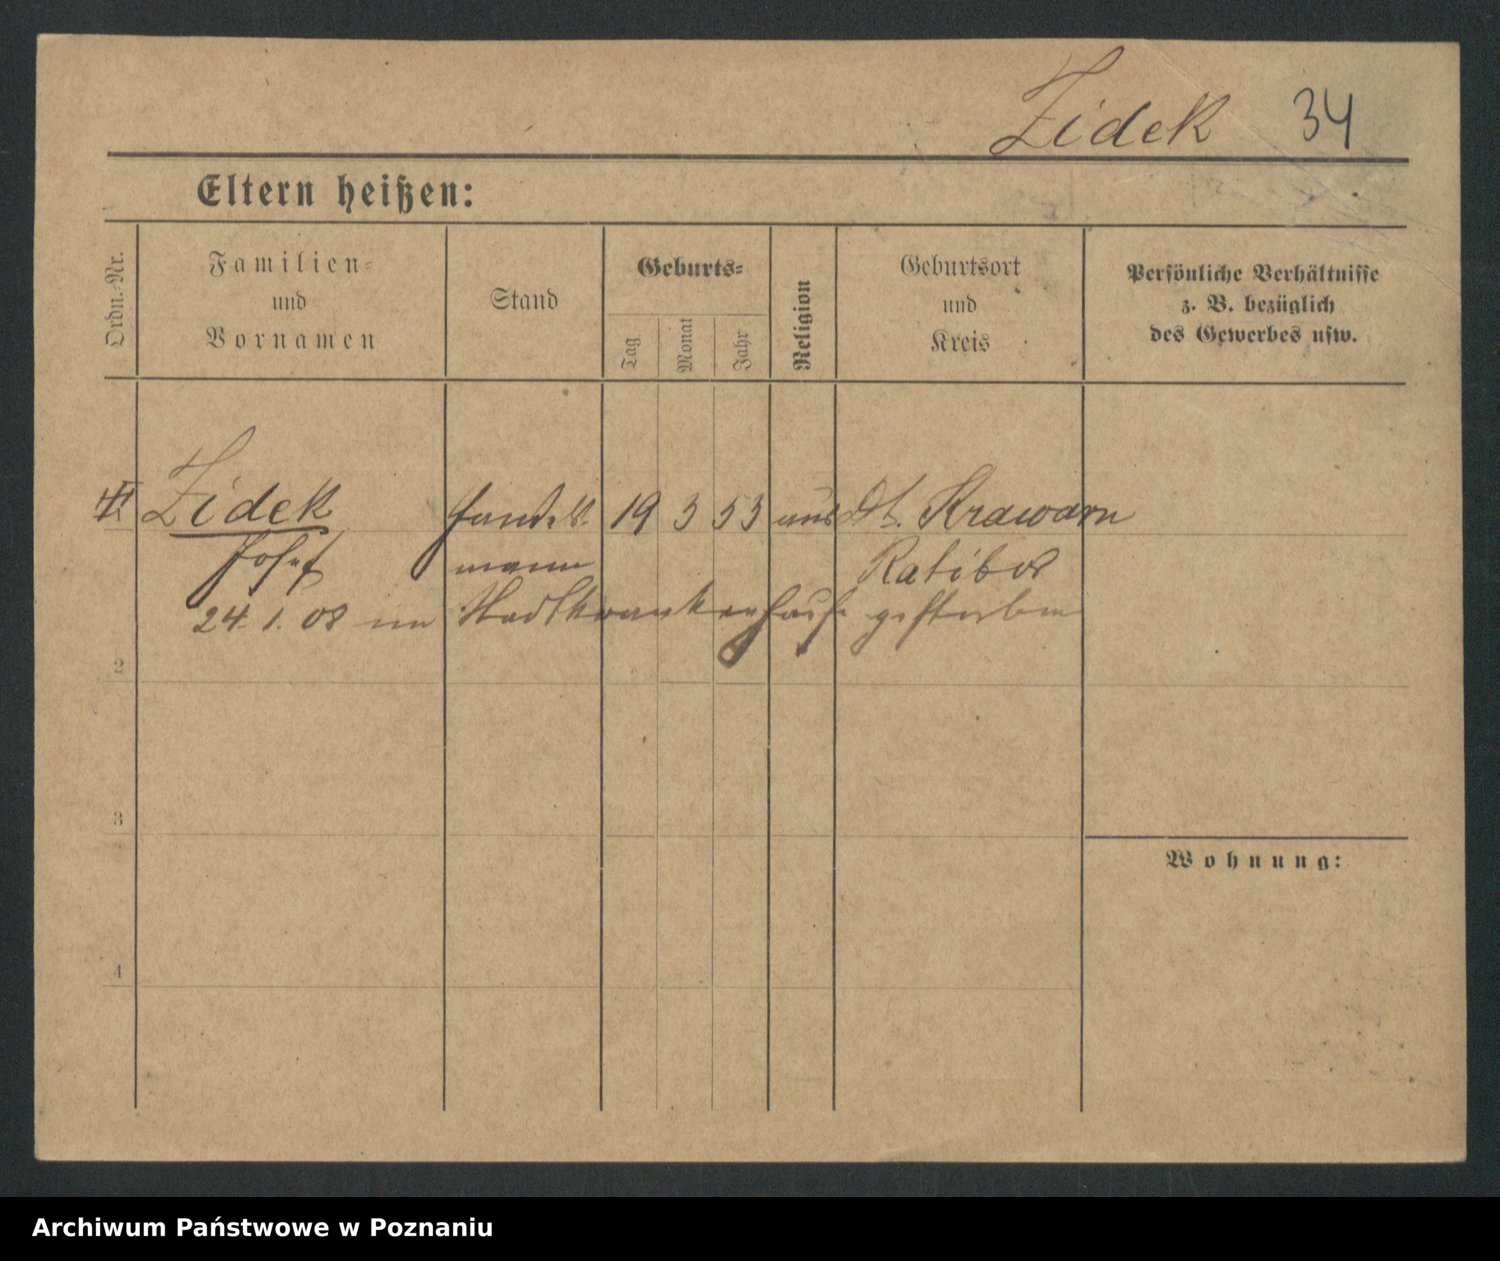 Zidek 34
Eltern heißen:
Ordn.-Nr.
Familien-
und
Vornamen
Stand
Geburts-
Tag
Monat
Jahr
Religion
Geburtsort
und
Kreis
Persönliche Verhältnisse
z. B. bezüglich
des Gewerbes usw.
Zidek Handels- 19 3 53 Dt. Krawarn
Josef mann Ratibor
24. 1. 08 im Stadtkrankenhause gestorben
2
3
Wohnung:
4
Archiwum Państwowe w Poznaniu